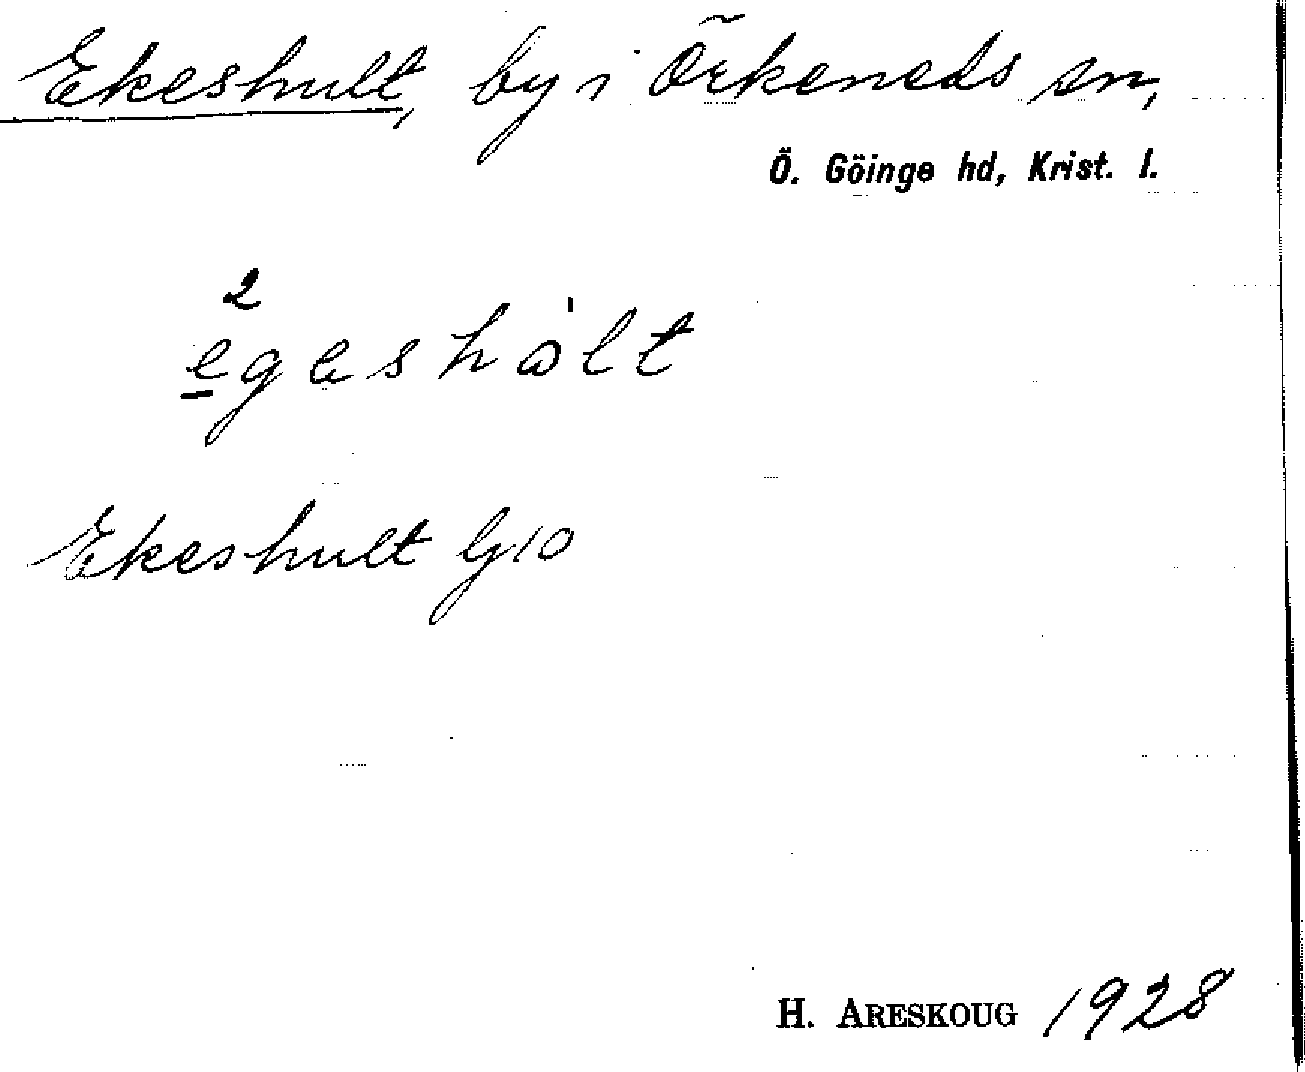 Ekeshult, by i Örkeneds sn,
Ö. Göinge hd, Krist. l.
2
egashålt
Ekeshult G10
H. ARESKOUG 1928